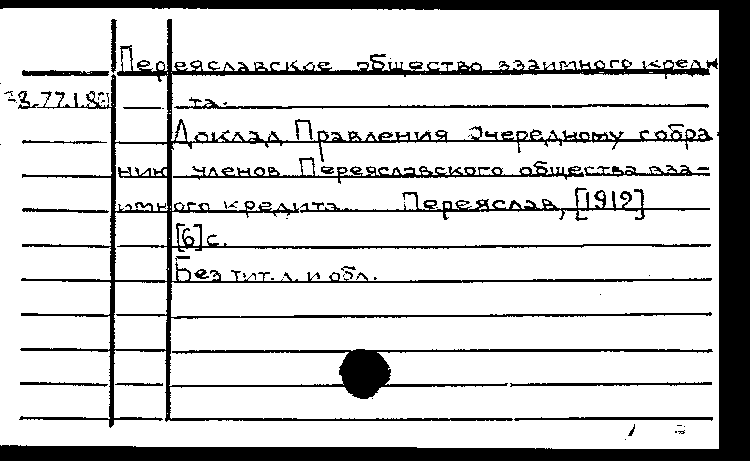 Переяславское общество взаимного креди
та.
Доклад Правления Очередному собра
нию членов Переяславского общества вза-
имного кредита. Переяслав, [1912]
[6] с.
Без тит. л. и обл.